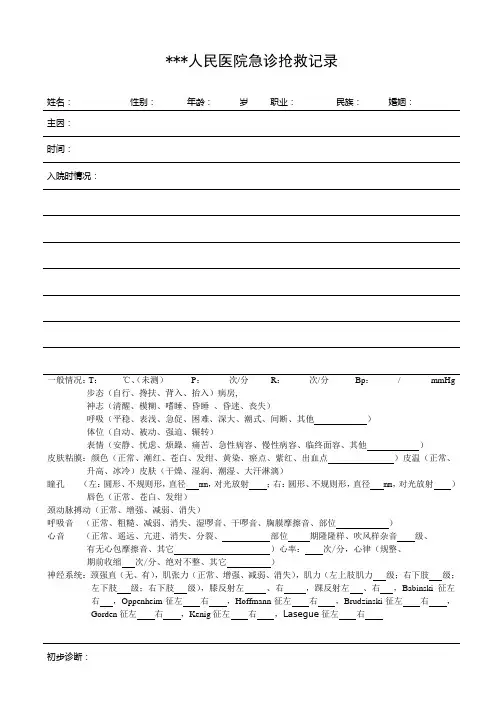 ***人民医院急诊抢救记录
姓名： 性别： 年龄： 岁 职业： 民族： 婚姻：
主因：
时间：
入院时情况：
一般情况：T： ℃、（未测） P： 次/分 R： 次/分 Bp： / mmHg
步态（自行、搀扶、背入、抬入）病房，
神志（清醒、模糊、嗜睡、昏睡 、昏迷、丧失）
呼吸（平稳、表浅、急促、困难、深大、潮式、间断、其他 ）
体位（自动、被动、强迫、辗转）
表情（安静、忧虑、烦躁、痛苦、急性病容、慢性病容、临终面容、其他 ）
皮肤粘膜：颜色（正常、潮红、苍白、发绀、黄染、瘀点、紫红、出血点 ）皮温（正常、
升高、冰冷）皮肤（干燥、湿润、潮湿、大汗淋漓）
瞳孔 （左：圆形、不规则形，直径 mm，对光放射 ；右：圆形、不规则形，直径 mm，对光放射 ）
唇色（正常、苍白、发绀）
颈动脉搏动（正常、增强、减弱、消失）
呼吸音 （正常、粗糙、减弱、消失、湿啰音、干啰音、胸膜摩擦音、部位 ）
心音 （正常、遥远、亢进、消失、分裂、 部位 期隆隆样、吹风样杂音 级、
有无心包摩擦音、其它 ）心率： 次/分，心律（规整、
期前收缩 次/分、绝对不整、其它 ）
神经系统：颈强直（无、有），肌张力（正常、增强、减弱、消失），肌力（左上肢肌力 级；右下肢 级；
左下肢 级；右下肢 级），膝反射左 、右 ，踝反射左 、右 ，Babinski 征左
右 ，Oppenheim 征左 右 ，Hoffmann 征左 右 ，Brudzinski 征左 右 ，
Gorden 征左 右 ，Kenig 征左 右 ，Lasegue 征左 右
初步诊断：